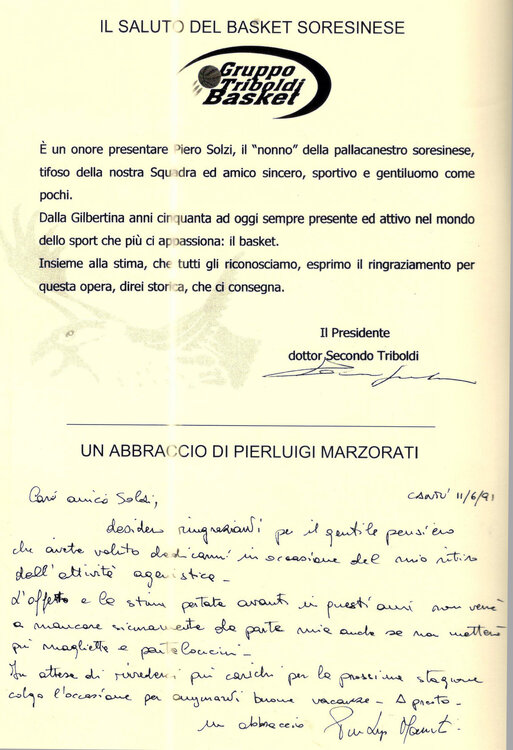 IL SALUTO DEL BASKET SORESINESE
Gruppo
Triboldi
Basket
È un onore presentare Piero Solzi, il "nonno" della pallacanestro soresinese,
tifoso della nostra Squadra ed amico sincero, sportivo e gentiluomo come
pochi.
Dalla Gilbertina anni cinquanta ad oggi sempre presente ed attivo nel mondo
dello sport che più ci appassiona: il basket.
Insieme alla stima, che tutti gli riconosciamo, esprimo il ringraziamento per
questa opera, direi storica, che ci consegna.
Il Presidente
dottor Secondo Triboldi
UN ABBRACCIO DI PIERLUIGI MARZORATI
Caro amico Solzi,
CANTU' 11/6/91
desidero ringraziarVi per il gentile pensiero
che avete voluto dedicarmi in occasione del mio ritiro
dall'attività agonistica -
L'affetto e la stima portata avanti in questi anni non verrà
a mancare sicuramente da parte mia anche se non metterò
più magliette e pantaloncini -
In attesa di rivederci più carichi per la prossima stagione
colgo l'occasione per augurarvi buone vacanze - A presto -
un abbraccio